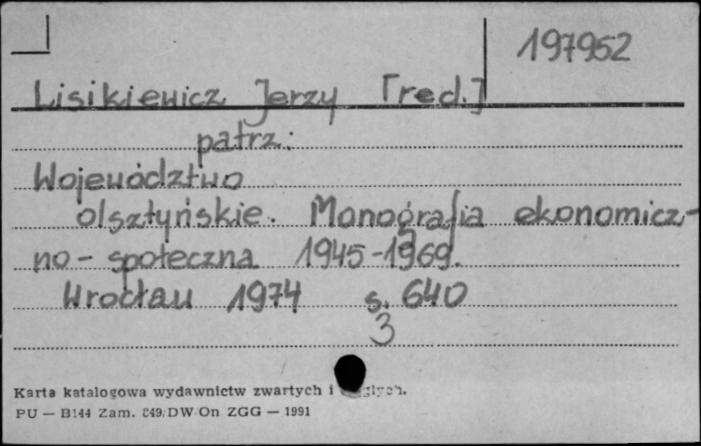 197952
Lisikiewicz Jerzy [red.]
patrz:
Województwo
olsztyńskie. Monografia ekonomicz-
no-społeczna 1945-1969.
Wrocław 1974 s. 640
3
Karta katalogowa wydawnictw zwartych i
PU — B144 Zam. 849/DW/On ZGG — 1991